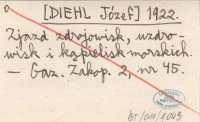 [DIEHL Józef] 1922.
Zjazd zdrojowisk, uzdro-
wisk i kąpielisk morskich.
— Gaz. Zakop. 2, nr 45.
BJ/011/1049